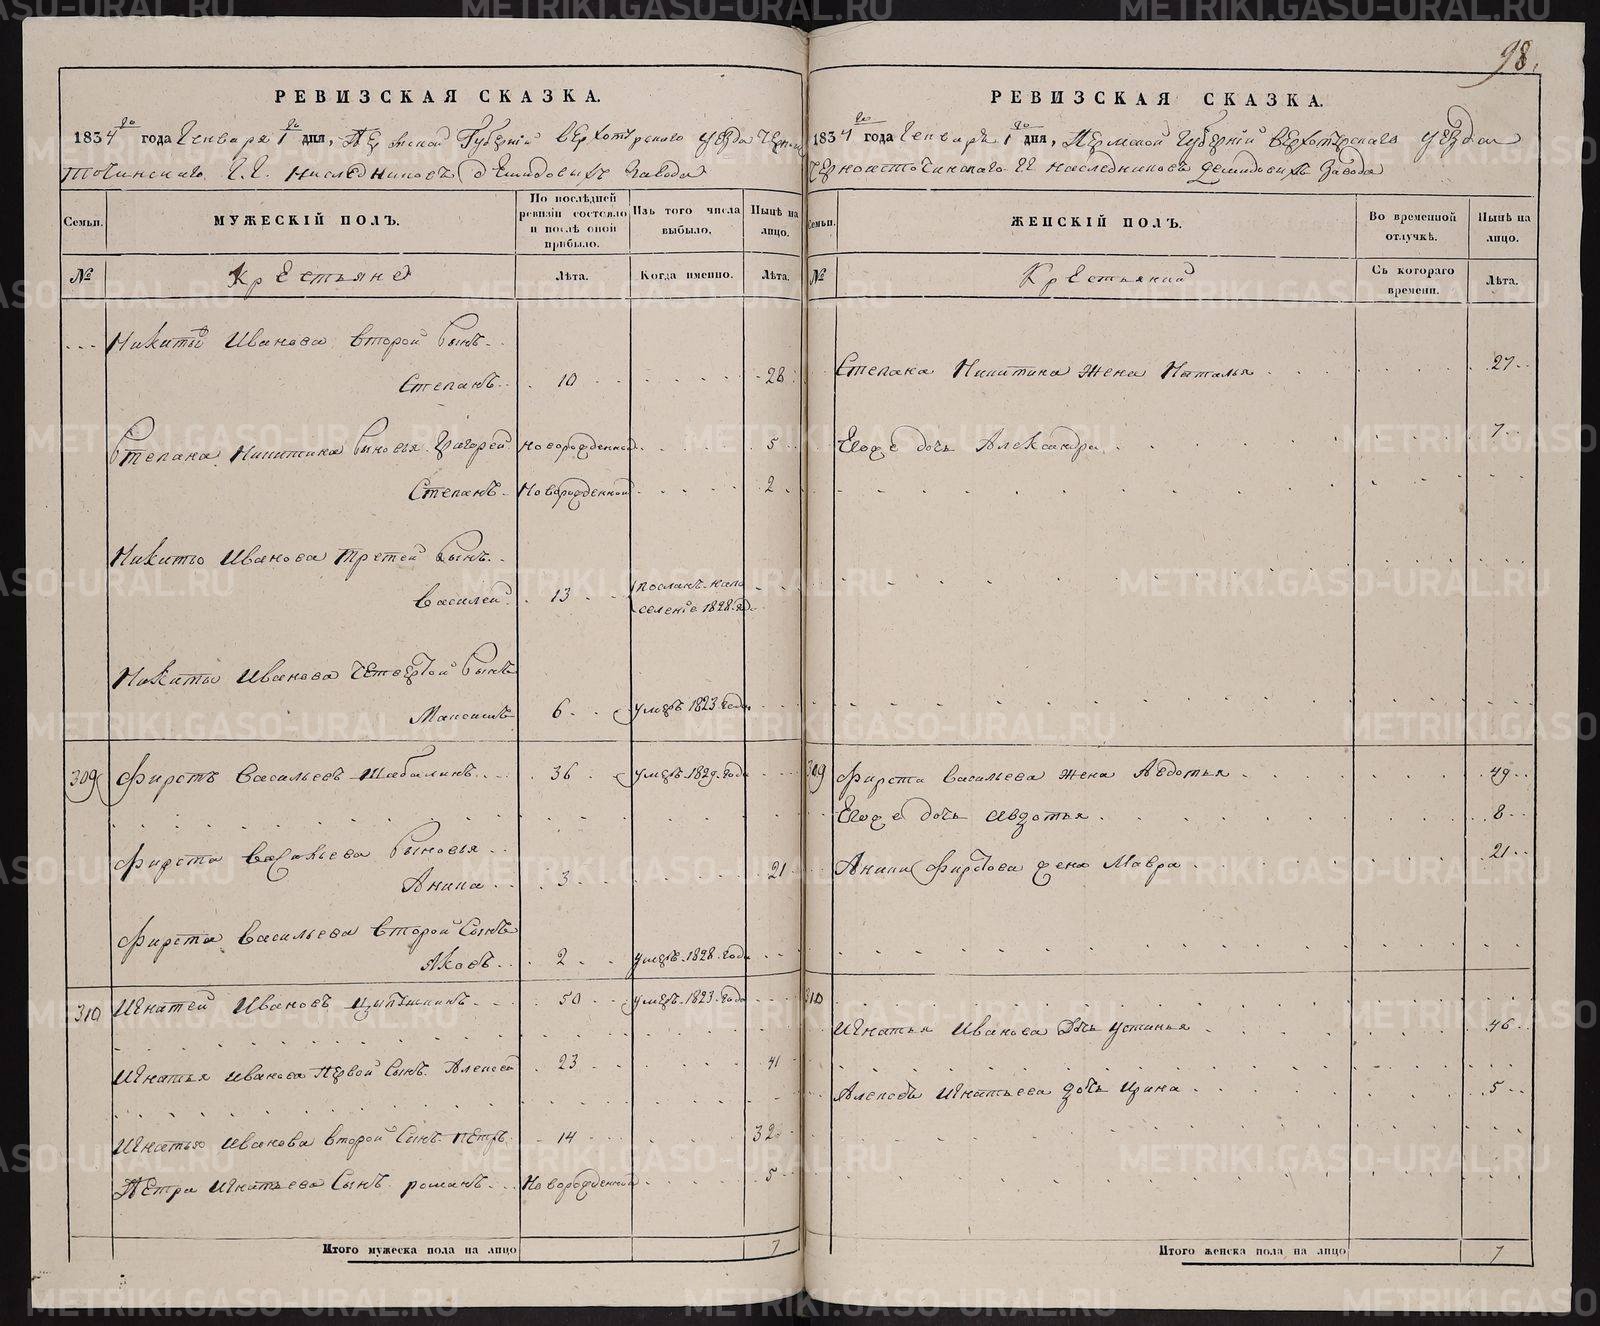 98.
РЕВИЗСКАЯ СКАЗКА.
1834го года Генваря 1го дня, Пермской Губернiи Верхотурского уезда Черно
источинскаго Г.Г. Наследниковъ Демидовыхъ завода
Семьи.
МУЖЕСКIЙ ПОЛЪ.
По послѣдней ревизiи состояло и послѣ оной прибыло.
Изъ того числа выбыло.
Нынѣ на лицо.
№
Крестьяне
Лѣта.
Когда именно.
Лѣта.
Никиты Иванова второй Сынъ
Степанъ 10 28
Степана Никитина Сыновья Григорей Новорожденной 5
Степанъ Новорожденной 2
Никиты Иванова третей Сынъ
Василей 13 посланъ на по
селенiе 1828 го
Никиты Иванова Четвертой Сынъ
Максимъ 6 умеръ 1823 года
309 Фирстъ Васильевъ Шабалинъ 36 умеръ 1829 года
Фирста Васильева Сыновья
Аника 3 21
Фирста Васильева второй Сынъ
Яковъ 2 умеръ 1828 года
310 Игнатей Ивановъ 50 умеръ 1823 года
Игнатья Иванова первой Сынъ Алексей 23 41
Игнатья Иванова второй Сынъ Петръ 14 32
Петра Игнатьева Сынъ Романъ Новорожденной 5
Итого мужеска пола на лицо 7
РЕВИЗСКАЯ СКАЗКА.
1834го года Генваря 1го дня, Пермской Губернiи Верхотурскаго уезда
Черноисточинскаго ГГ Наследниковъ Демидовыхъ Завода
Семьи.
ЖЕНСКIЙ ПОЛЪ.
Во временной отлучкѣ.
Нынѣ на лицо.
№
Крестьянки
Съ котораго времени.
Лѣта.
Степана Никитина жена Наталья 27
Егоже дочь Александра 7
309 Фирста Васильева жена Авдотья 49
Егоже дочь Авдотья 8
Аники Фирстова жена Мавра 21
310
Игнатья Иванова дочь Устинья 46
Алексея Игнатьева дочь Ирина 5
Итого женска пола на лицо 7
METRIKI.GASO-URAL.RU